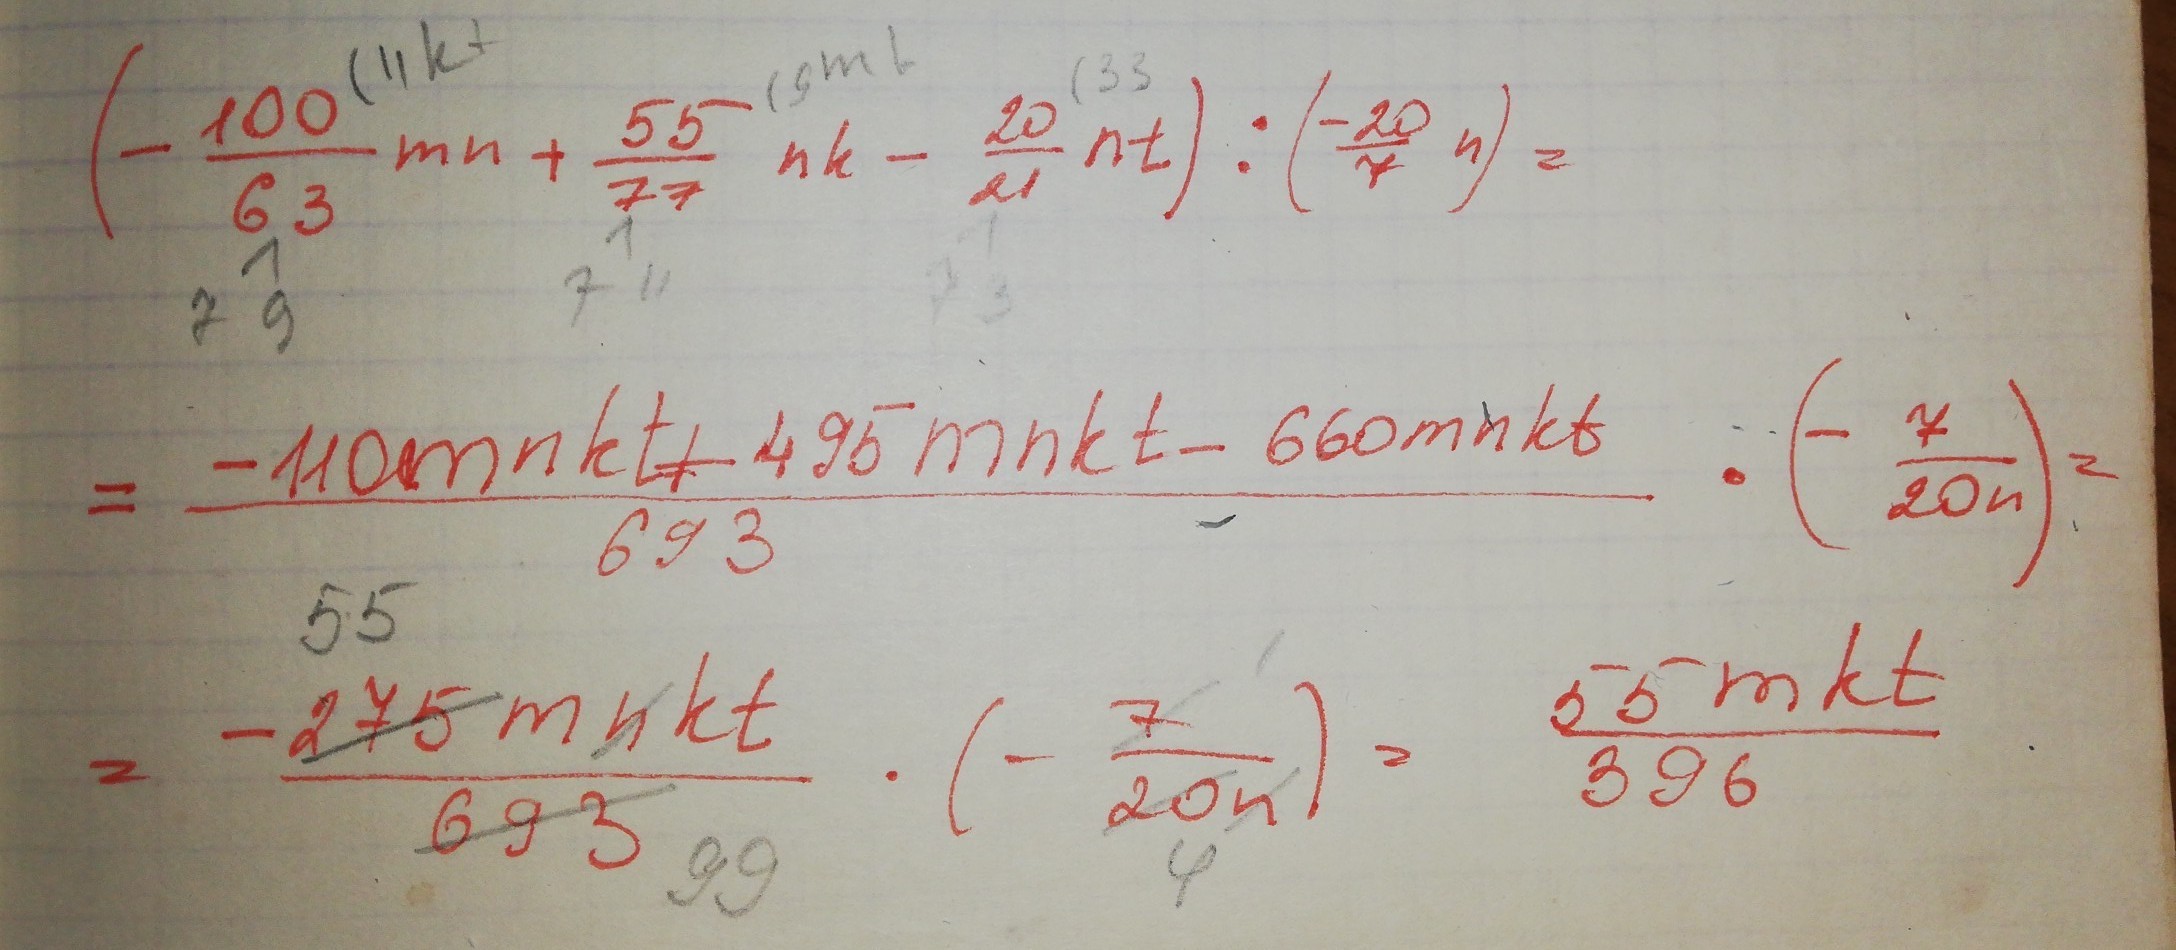 (- 100/63 mn + 55/77 nk - 20/21 nt) : (-20/7 n) =
(11kt (9mt (33
7 9 7 11 7 3
= -1100mnkt + 495mnkt - 660mnkt / 693 · (- 7/20n) =
55
= -275mnkt / 693 · (- 7/20n) = 55mkt / 396
99 4